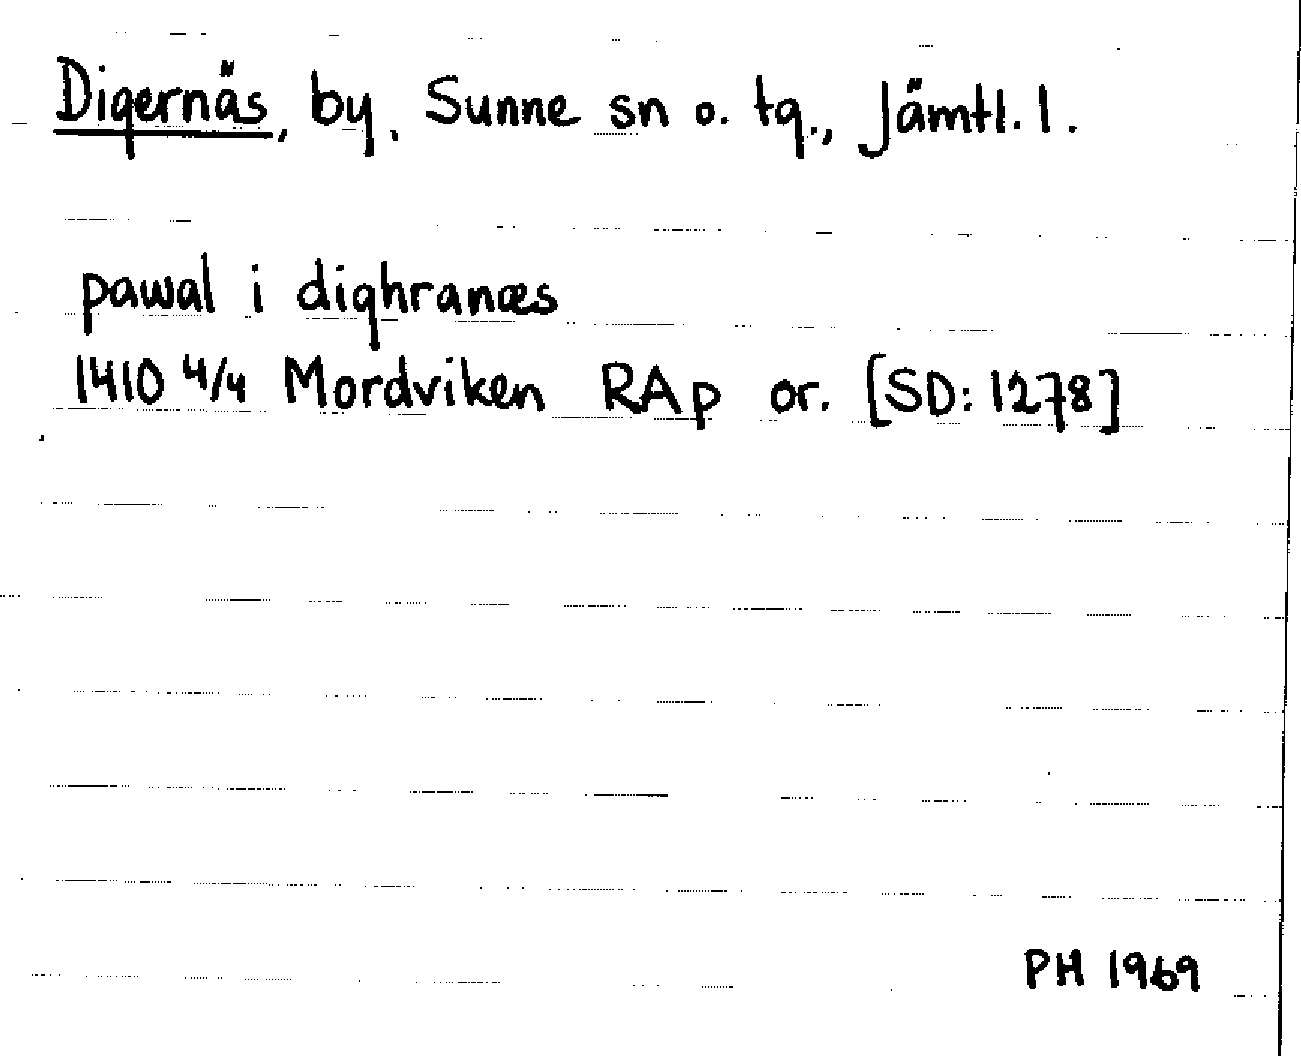 Digernäs, by. Sunne sn o. tg., Jämtl. l.
pawal i dighranæs
1410 4/4 Mordviken RAp or. [SD: 1278]
PH 1969